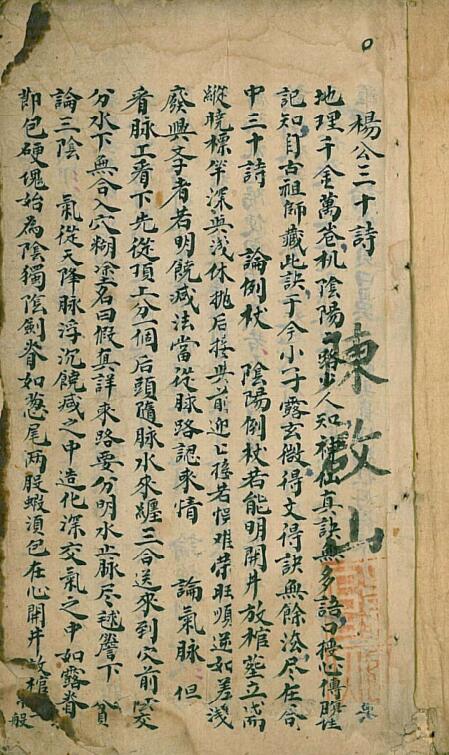 楊公三十詩
地理千金萬卷机陰陽人知神仙真訣無多語口授心傳
記知自古祖師藏此訣于今小子露玄微得文得訣無餘法尽在
中三十詩 論倒杖 陰陽倒杖若能明開井放棺
縱曉標竿深與浅休挑后接與前迎悮难荣旺順逆如差浅
廢與文手者若明饒减法當從脉路認来情 論氣脉 但
看脉工看下先從頂上分個后頭隨脉水来纏三合送来到穴前
分水下無合入穴糊塗名曰假其詳来路要分明水止脉尽毬簷下
論三陰 氣從天降脉浮沉饒减之中造化深交氣之中如露脊
即包硬塊始為陰獨陰劍脊如葱尾两股蝦湏包在心開井放棺
般
陳啟山